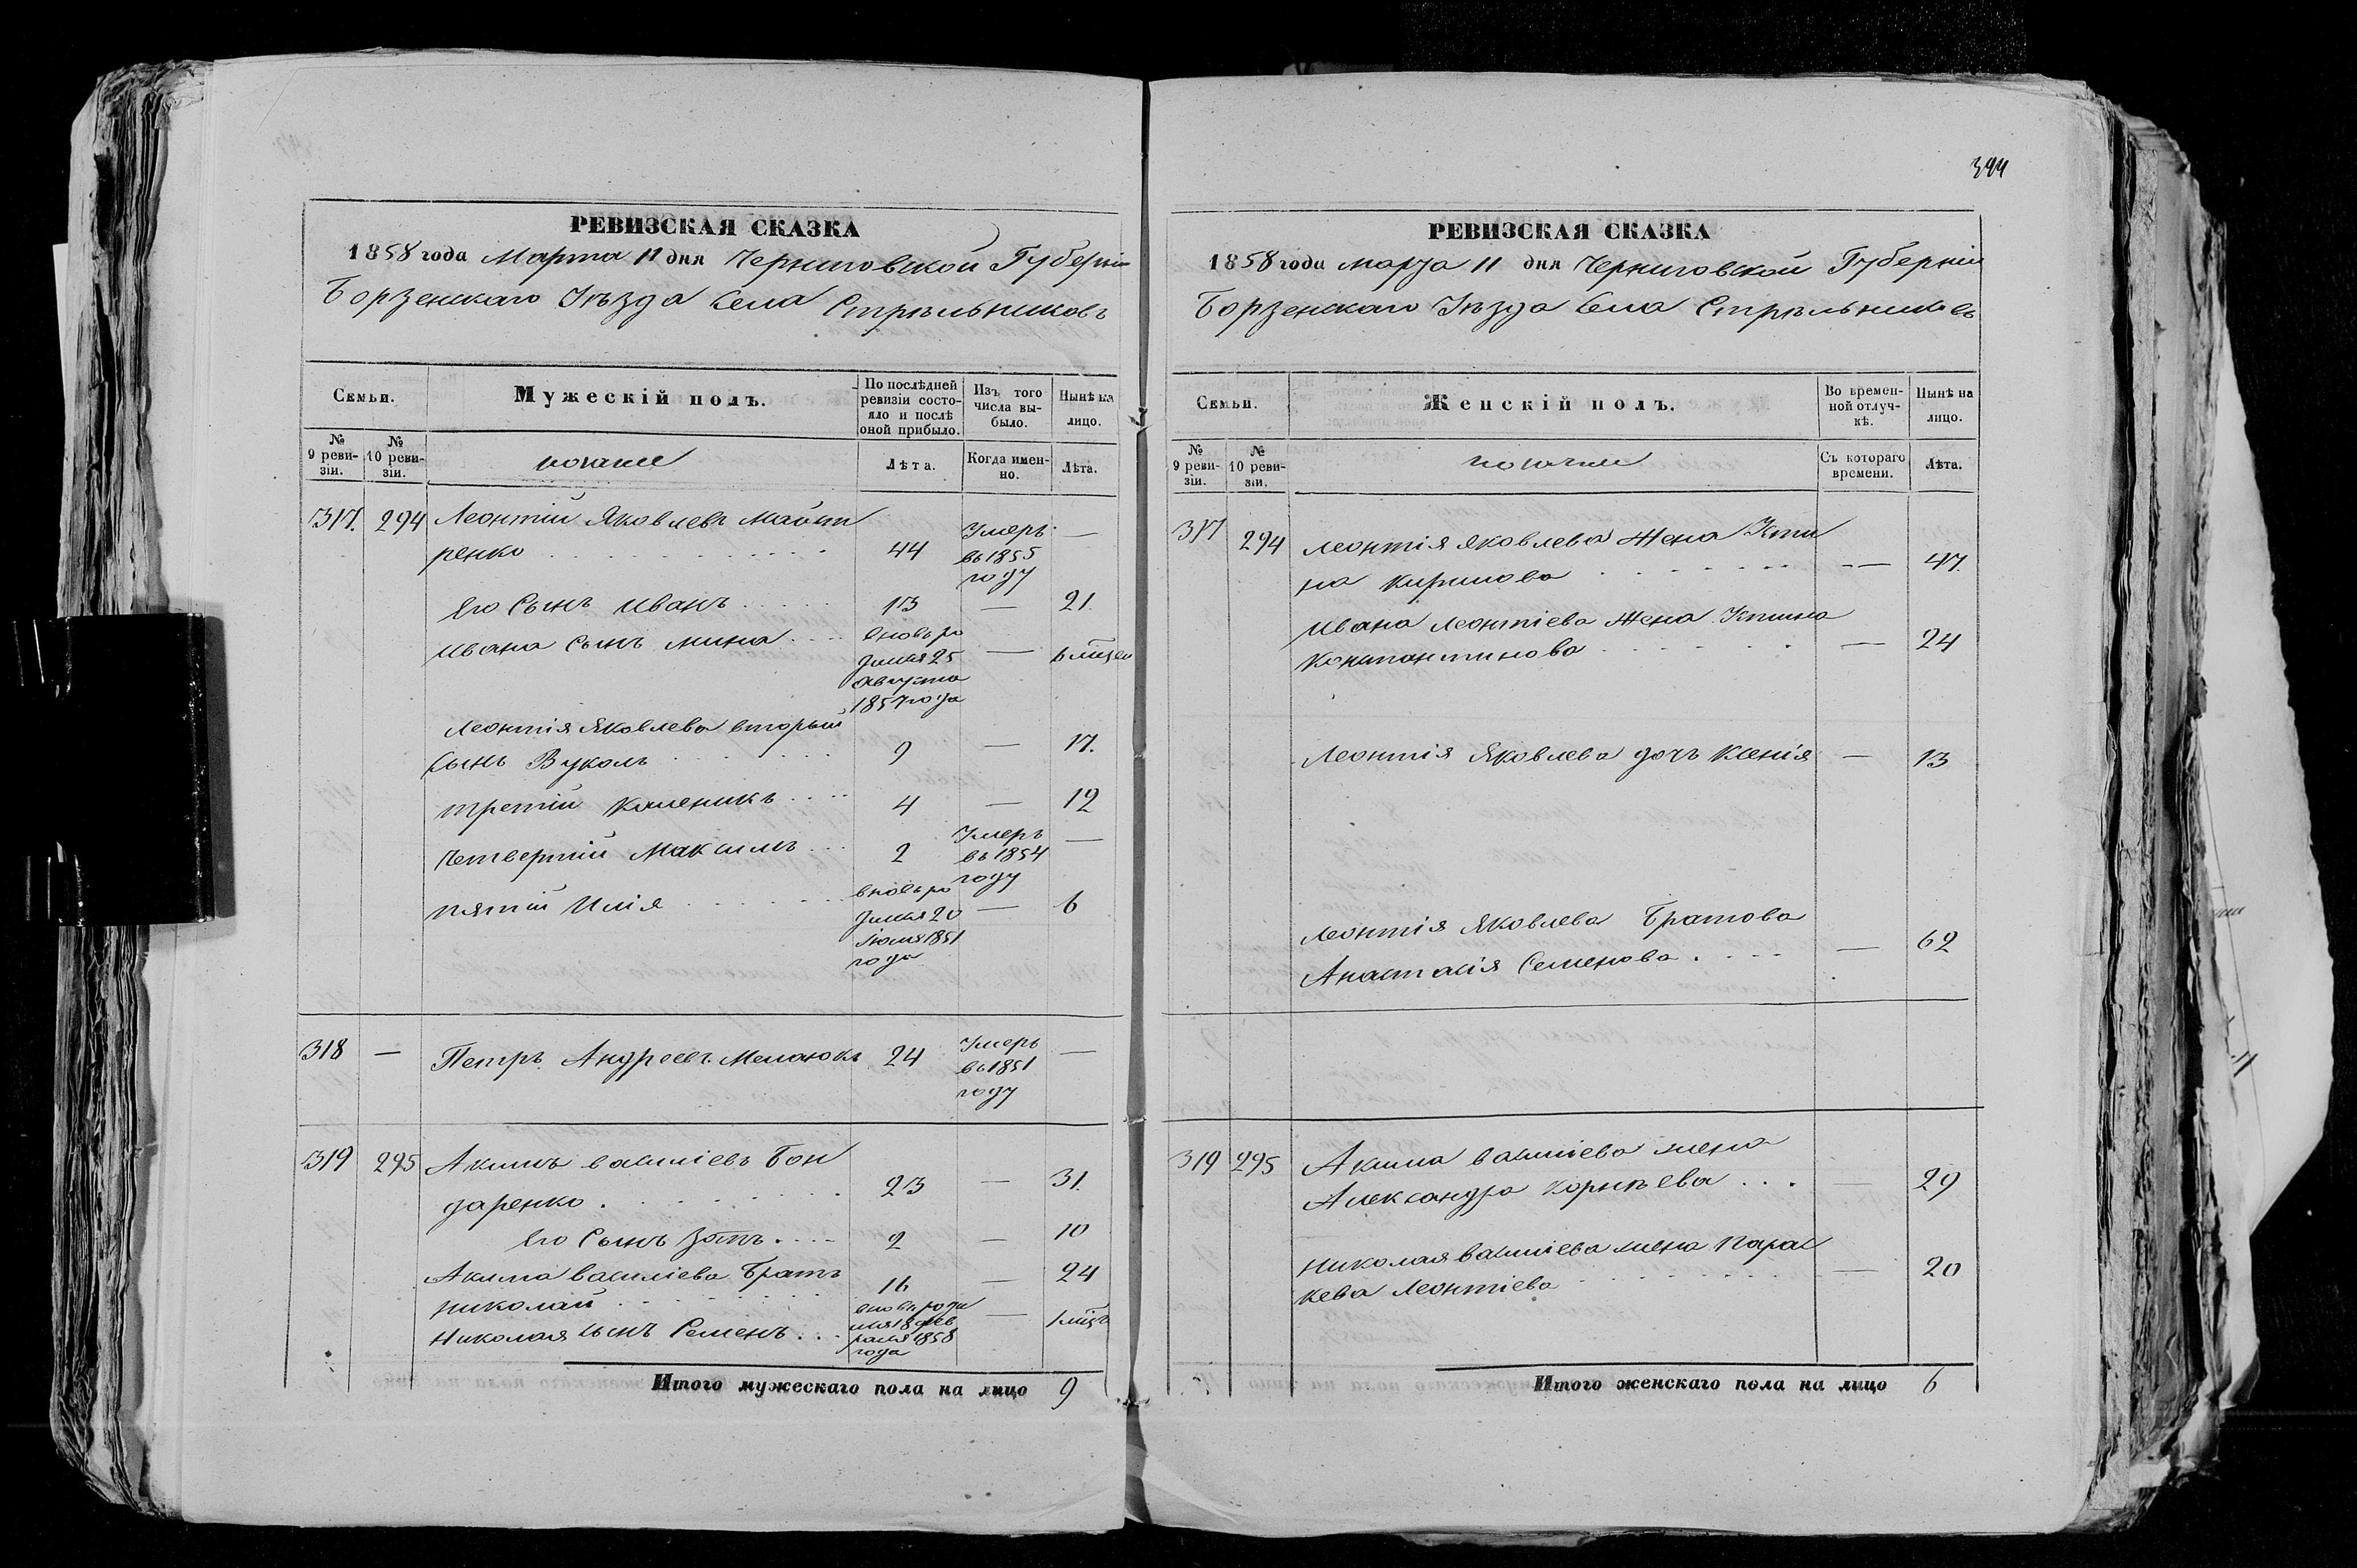 РЕВИЗСКАЯ СКАЗКА
1858 года Марта 11 дня Черниговской Губерніи
Борзенскаго Уѣзда Села Стрѣльниковъ
Семьи.
Мужескій полъ.
По послѣдней ревизіи состояло и послѣ оной прибыло.
Изъ того числа выбыло.
Нынѣ на лицо.
№ 9 ревизіи.
№ 10 ревизіи.
Лѣта.
Когда именно.
Лѣта.
317. 294 Леонтій Яковлевъ Майст
ренко 44 Умеръ въ 1855 году —
Его Сынъ Иванъ 13 — 21.
Ивана Сынъ Мина вновь ро
жденъ 25
августа
1857 года
— 6 мѣсяц
Леонтія Яковлева вторый
Сынъ Вуколъ 9 — 17.
третій Каленикъ 4 — 12
четвертий Максимъ 2 Умеръ въ 1854 году —
пятій Илія вновь ро
жденъ 20
Іюля 1851
года
— 6
318 — Петръ Андреевъ 24 Умеръ въ 1851 году —
319 295 Акимъ Василіевъ Бон
даренко 23 — 31.
Его Сынъ Зотъ 2 — 10
Акима Василіева Братъ
Николай 16 — 24
Николая сынъ Семенъ вновь рож
денъ 18 фев
раля 1858
года
— 1 мѣсяц
Итого мужескаго пола на лицо 9
394
РЕВИЗСКАЯ СКАЗКА
1858 года Марта 11 дня Черниговской Губерніи
Борзенскаго Уѣзда Села Стрѣльниковъ
Семьи.
Женскій полъ.
Во временной отлучкѣ.
Нынѣ на лицо.
№ 9 ревизіи.
№ 10 ревизіи.
Съ котораго времени.
Лѣта.
317 294 Леонтія Яковлева Жена Усти
на Кирилова — 47.
Ивана Леонтіева Жена Устина
Константинова — 24
Леонтія Яковлева дочь Ксенія — 13
Леонтія Яковлева Братова
Анастасія Семенова — 62
319 295 Акима Василіева жена
Александра Корнѣева — 29
Николая Василіева жена Парас
кева Леонтіева — 20
Итого женскаго пола на лицо 6